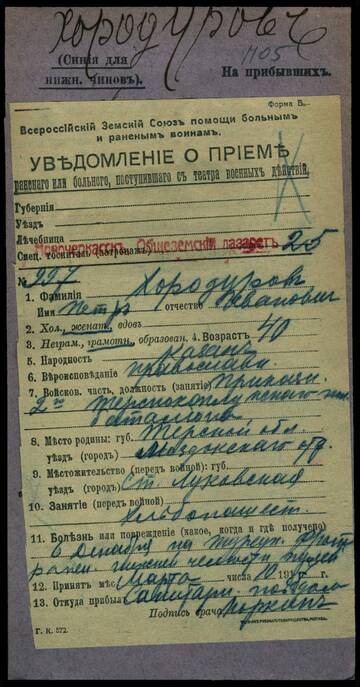 Хородуровъ
1105
(Синія для
нижн. чиновъ).
На прибывшихъ.
Форма В.
Всероссійскій Земскій Союзъ помощи больнымъ
и раненымъ воинамъ.
УВѢДОМЛЕНІЕ О ПРІЕМѢ
раненаго или больного, поступившаго съ театра военныхъ дѣйствій,
Губернія
Уѣздъ
Лѣчебница
Новочеркасскъ. Общеземскій лазаретъ 25
Спец. госпиталь (патронаж.)
№ 227
1. Фамилія Хородуровъ
Имя Петръ отчество Ивановичъ
2. Хол., женат., вдовъ
3. Неграм., грамотн., образован. 4. Возрастъ 40
5. Народность казакъ
6. Вѣроисповѣданіе православн.
7. Войсков. часть, должность (занятіе) Приказн.
2й Терско
8. Мѣсто родины: губ. Терской обл.
уѣздъ (город.) Моздокскаго отд.
9. Мѣстожительство (передъ войной): губ.
уѣздъ (город.) Ст. Луковская
10. Занятіе (передъ войной)
Хлѣбопашест.
11. Болѣзнь или поврежденіе (какое, когда и гдѣ получено)
6 Декабря на турецк. фронт
ранен. нижней челюсти пулей
12. Принятъ мѣс. Марта числа 10 191
13. Откуда прибылъ Санитарн. поѣзда
Подпись врача
Г. К. 572.